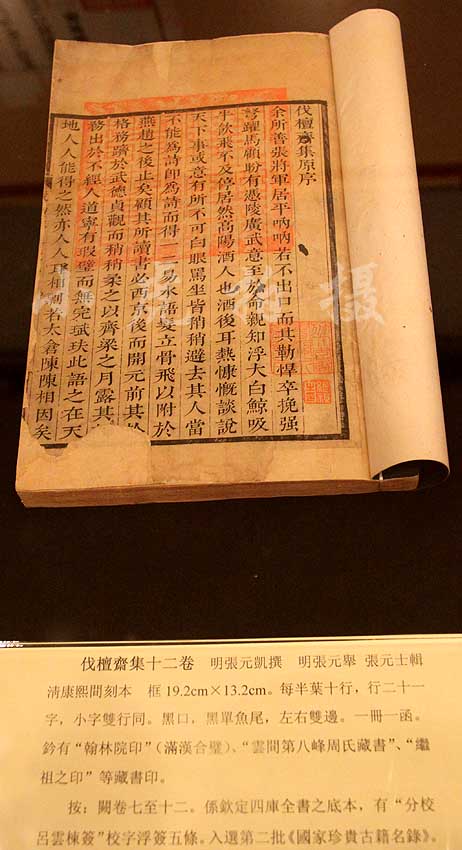 伐檀齋集原序
余所善張將軍居平吶吶若不出口而其勒悍卒挽强
弩躍馬顧盼有憑陵廣武意至於命親知浮大白鯨吸
牛飲張不及停居然高陽酒人也酒後耳熱慷慨談說
天下事或意有所不可白眼罵坐皆稍稍避去其人當
不能為詩即為詩而得一二易水語髮立骨飛以附於
燕趙之後止矣顧其所讀書必西京後而開元前其於
格務躋於武德貞觀而稍稍柔之以齊梁之月露其
務出於不經人道寧有瑕璧而無完珷玞此語之在天
地人人能得之然亦人人耳相剽若太倉陳陳相因矣
摄
伐檀齋集十二卷 明張元凱撰 明張元舉 張元士輯
清康熙間刻本 框19.2cm×13.2cm。每半葉十行,行二十一
字,小字雙行同。黑口,黑單魚尾,左右雙邊。一冊一函。
鈐有“翰林院印”(滿漢合璧)、“雲間第八峰周氏藏書”、“繼
祖之印”等藏書印。
按:闕卷七至十二。係欽定四庫全書之底本,有“分校
呂雲棟簽”校字浮簽五條。入選第二批《國家珍貴古籍名錄》。